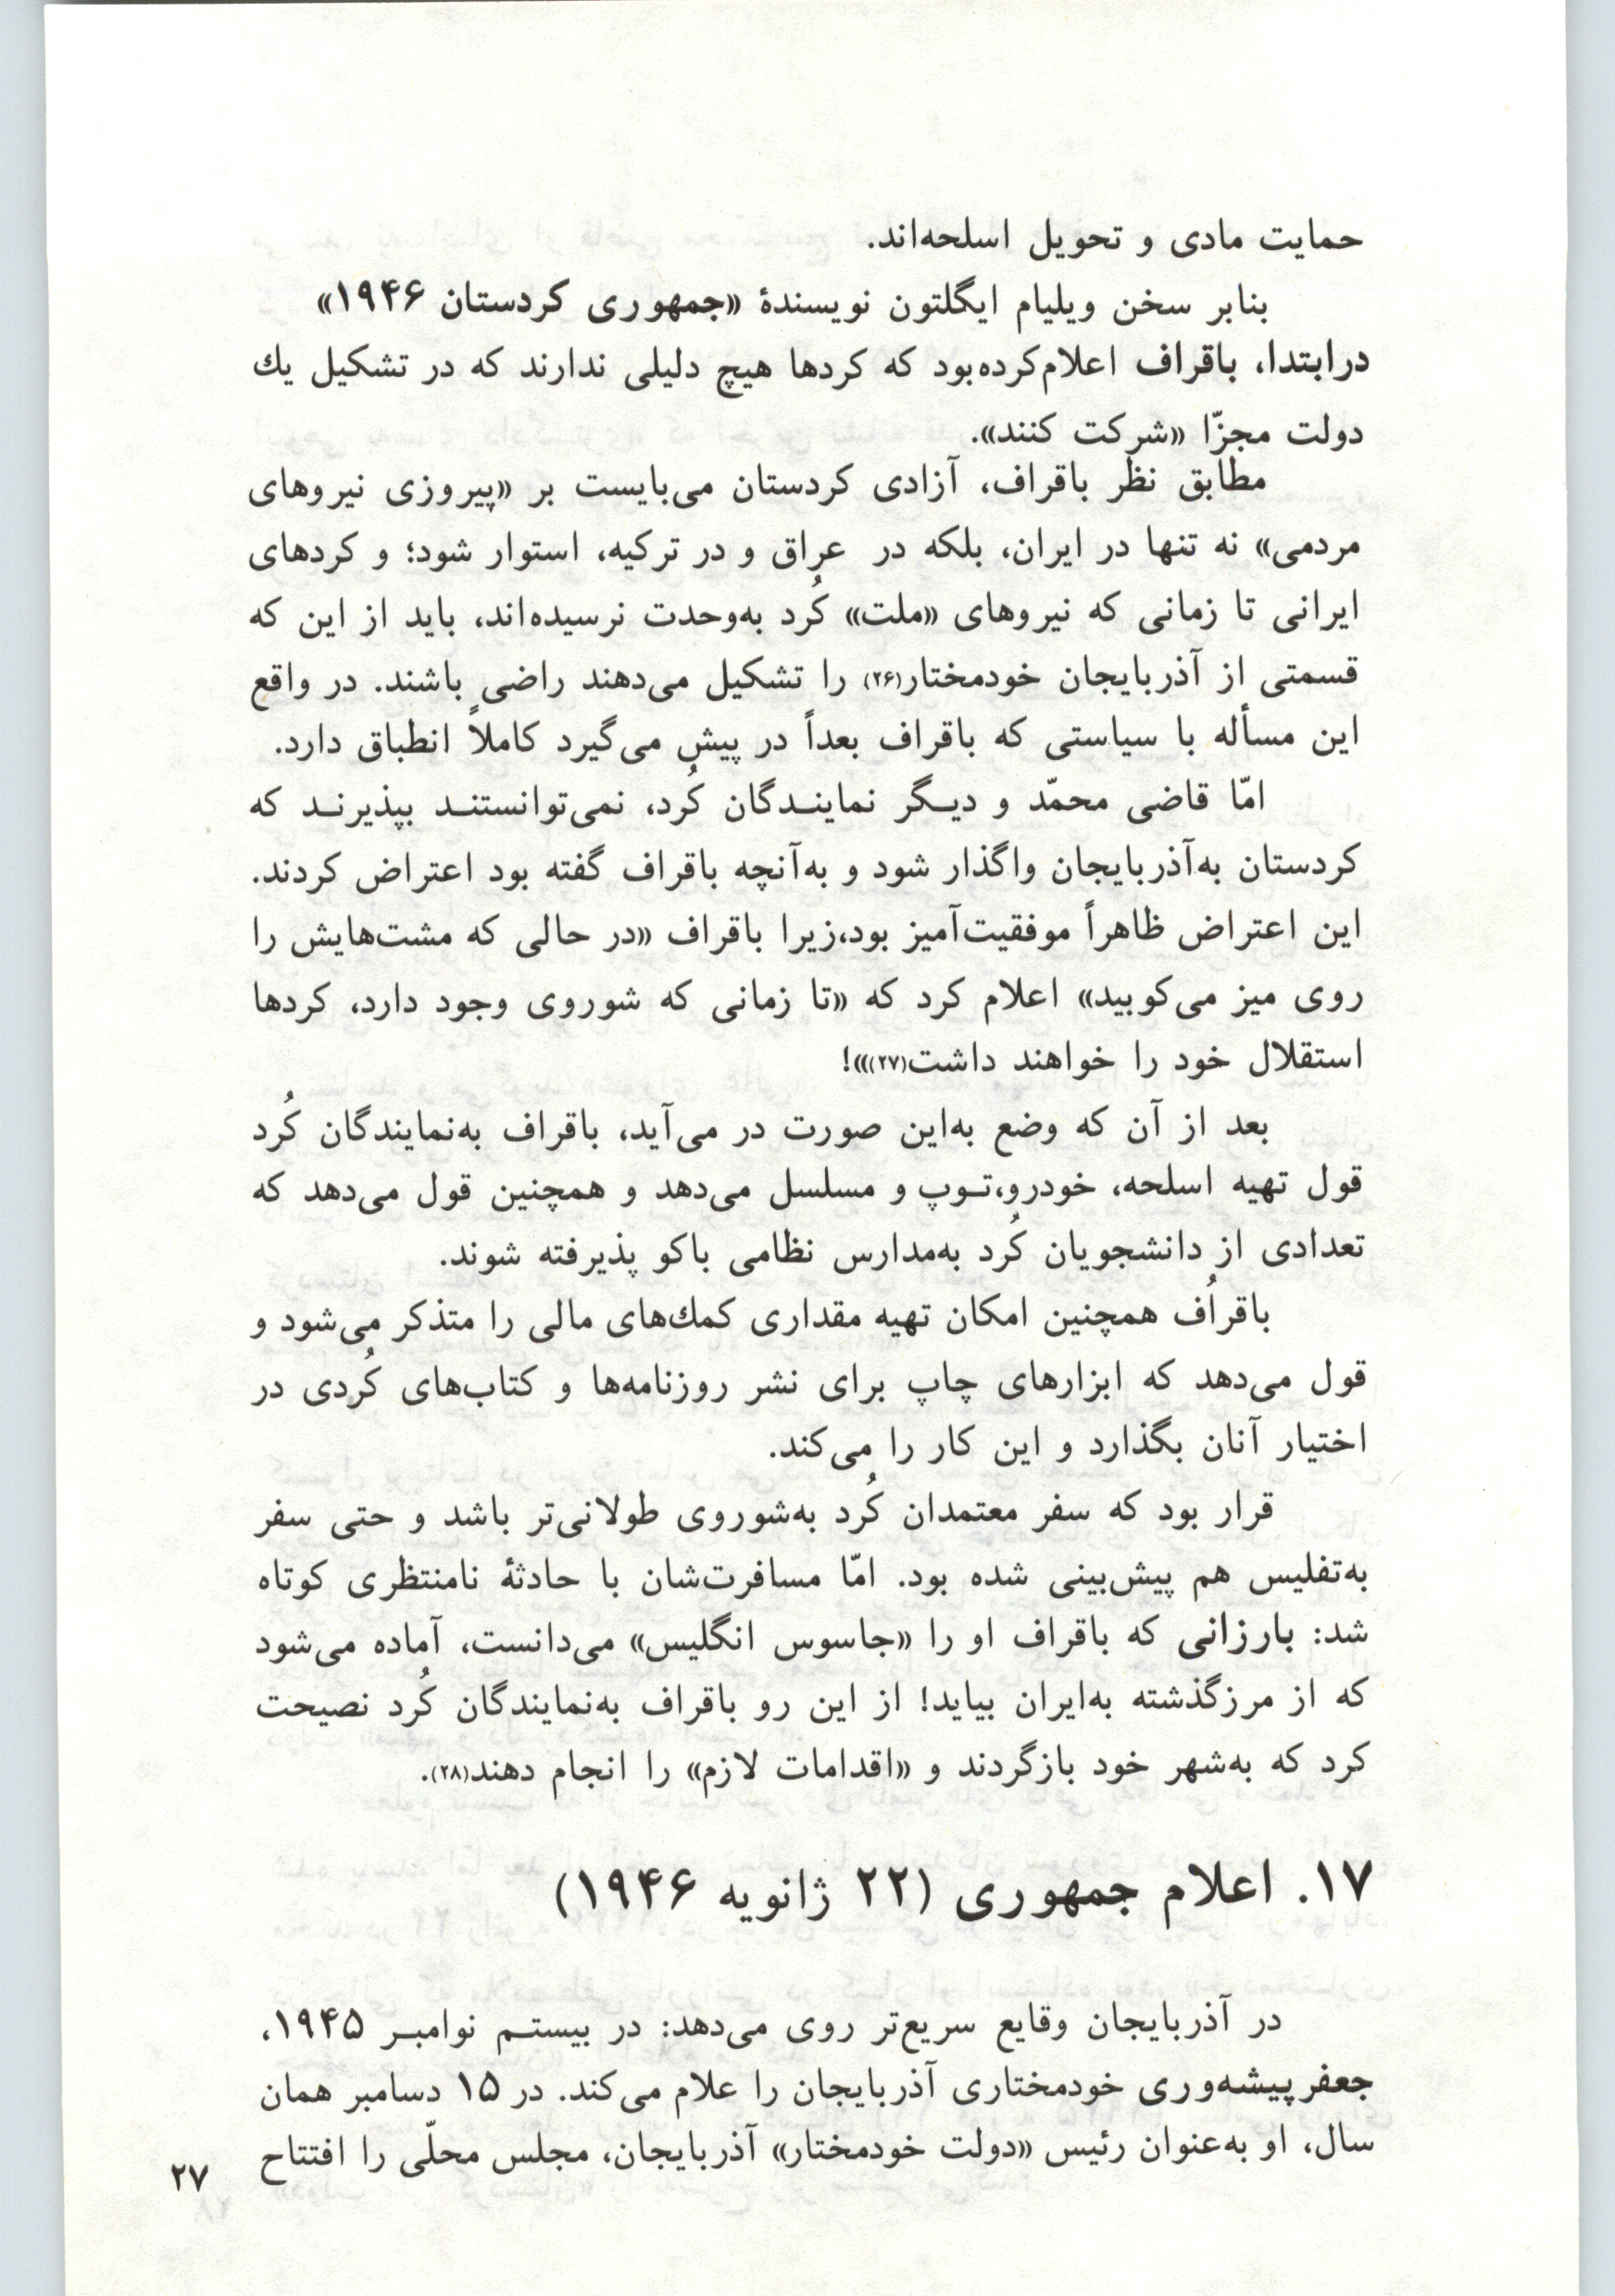 حمایت مادی و تحویل اسلحه‌اند.
بنابر سخن ویلیام ایگلتون نویسندهٔ «جمهوری کردستان ۱۹۴۶»
درابتدا، باقراف اعلام‌کرده‌بود که کردها هیچ دلیلی ندارند که در تشکیل یك
دولت مجزّا «شرکت کنند».
مطابق نظر باقراف، آزادی کردستان می‌بایست بر «پیروزی نیروهای
مردمی» نه تنها در ایران، بلکه در عراق و در ترکیه، استوار شود؛ و کردهای
ایرانی تا زمانی که نیروهای «ملت» کُرد به‌وحدت نرسیده‌اند، باید از این که
قسمتی از آذربایجان خودمختار(۲۶) را تشکیل می‌دهند راضی باشند. در واقع
این مسأله با سیاستی که باقراف بعداً در پیش می‌گیرد کاملاً انطباق دارد.
امّا قاضی محمّد و دیـگر نماینـدگان کُرد، نمی‌توانستنـد بپذیرنـد که
کردستان به‌آذربایجان واگذار شود و به‌آنچه باقراف گفته بود اعتراض کردند.
این اعتراض ظاهراً موفقیت‌آمیز بود،زیرا باقراف «در حالی که مشت‌هایش را
روی میز می‌کوبید» اعلام کرد که «تا زمانی که شوروی وجود دارد، کردها
استقلال خود را خواهند داشت(۲۷)»!
بعد از آن که وضع به‌این صورت در می‌آید، باقراف به‌نمایندگان کُرد
قول تهیه اسلحه، خودرو،تـوپ و مسلسل می‌دهد و همچنین قول می‌دهد که
تعدادی از دانشجویان کُرد به‌مدارس نظامی باکو پذیرفته شوند.
باقراُف همچنین امکان تهیه مقداری کمك‌های مالی را متذکر می‌شود و
قول می‌دهد که ابزارهای چاپ برای نشر روزنامه‌ها و کتاب‌های کُردی در
اختیار آنان بگذارد و این کار را می‌کند.
قرار بود که سفر معتمدان کُرد به‌شوروی طولانی‌تر باشد و حتی سفر
به‌تفلیس هم پیش‌بینی شده بود. امّا مسافرت‌شان با حادثهٔ نامنتظری کوتاه
شد: بارزانی که باقراف او را «جاسوس انگلیس» می‌دانست، آماده می‌شود
که از مرزگذشته به‌ایران بیاید! از این رو باقراف به‌نمایندگان کُرد نصیحت
کرد که به‌شهر خود بازگردند و «اقدامات لازم» را انجام دهند(۲۸).
۱۷. اعلام جمهوری (۲۲ ژانویه ۱۹۴۶)
در آذربایجان وقایع سریع‌تر روی می‌دهد: در بیستـم نوامبـر ۱۹۴۵،
جعفرپیشه‌وری خودمختاری آذربایجان را علام می‌کند. در ۱۵ دسامبر همان
سال، او به‌عنوان رئیس «دولت خودمختار» آذربایجان، مجلس محلّی را افتتاح
۲۷